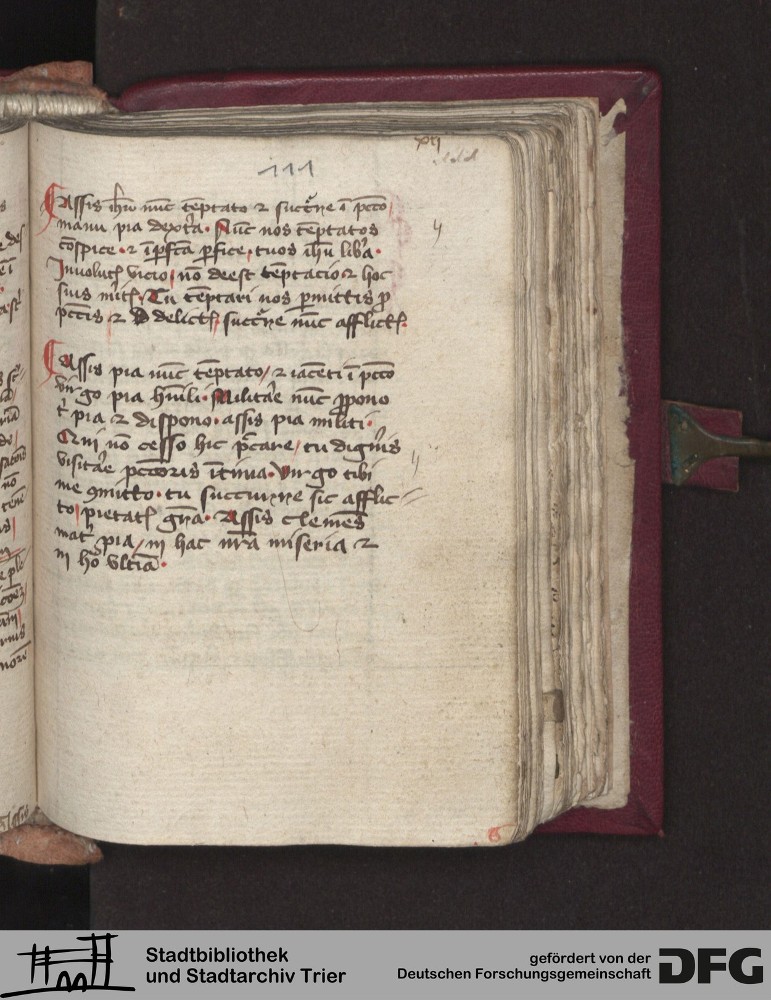 111
Assis ihu nūc tēptato ⁊ succ̄re ī pcc̄o
manu pia dext̄a. Nūc nos tēptatos
cōspice. ⁊ īpfc̄a pfice, tuos ihu lib̄a.
Inuolut vicio, nō deest tēptacio ⁊ hoc
suis Tu tēptari nos pmittis p
pcc̄is ⁊ delict, succ̄re nūc afflict.
Assis pia nūc tēptato, ⁊ iacēti ī pcc̄o
virgo pia hūili. Militāe nūc ppono
t pia ⁊ dispono. assis pia militi.
Cui nō cesso hic pc̄are, tu dign̄is
visitāe pcc̄oris ītima. Virgo tibi
me ꝯmitto. tu succurre sic afflic
to, pietat gn̄a. Assis clemēs
mat pia, in hac nr̄a miseria ⁊
in ho vltīa.
Stadtbibliothek
und Stadtarchiv Trier
gefördert von der
Deutschen Forschungsgemeinschaft
DFG